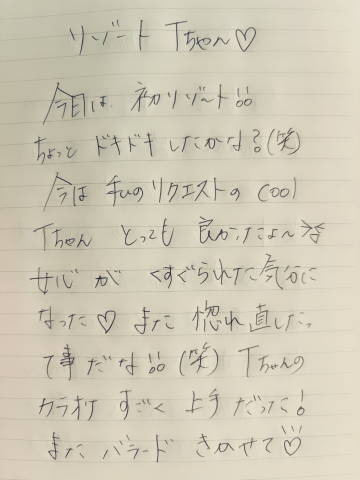 リゾート Tちゃん♡
今日は、初リゾート!!
ちょっと ドキドキ したかな?(笑)
今は 私のリクエストの cool
Tちゃん とっても 良かったよ〜
女心が くすぐられた気分に
なった♡ また 惚れ直したっ
て事だな!!(笑) Tちゃんの
カラオケ すごく 上手だった!
また バラード きかせて♡